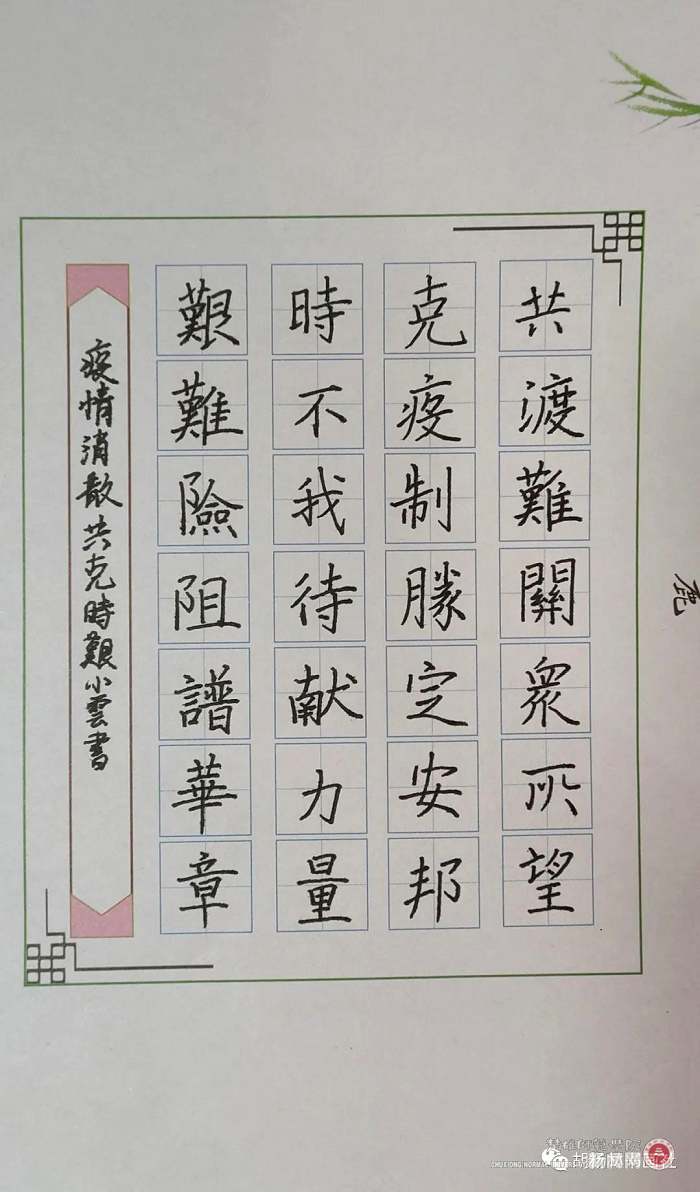 共渡難關衆所望
克疫制勝定安邦
時不我待献力量
艱難險阻譜華章
疫情消散共克時艱小雲書
鹿
楚雄師範學院
CHUXIONG NORMAL UNIVERSITY
胡杨林网画社